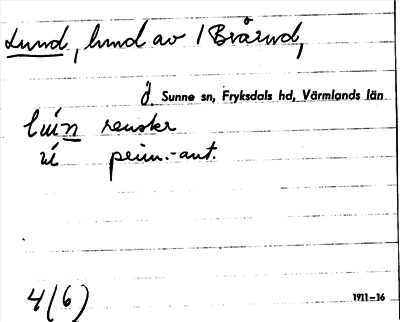 Lund, lund av / Brårud,
i Sunne sn, Fryksdals hd, Värmlands län
renskr
penn.-ant.
4(6)
1911-16